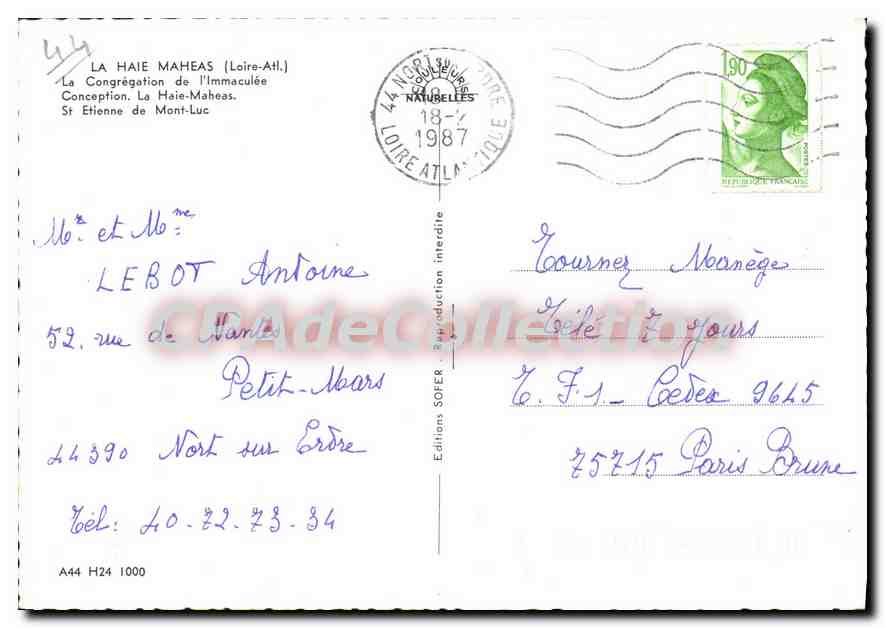 44
LA HAIE MAHEAS (Loire-Atl.)
La Congrégation de l'Immaculée
Conception. La Haie-Maheas.
St Etienne de Mont-Luc
44 NORT SUR ERDRE
COULEURS
NATURELLES
18-
1987
LOIRE ATLANTIQUE
1,90
POSTES
REPUBLIQUE FRANÇAISE
Mr et Mme
LEBOT Antoine
52, rue de Nantes
Petit-Mars
44390 Nort sur Erdre
Tél: 40-72-73-34
A44 H24 1000
Editions SOFER - Reproduction interdite
Tournez Manège
Télé 7 Jours
T.F.1- Cedex 9645
75715 Paris Brune
CPAdeCollection